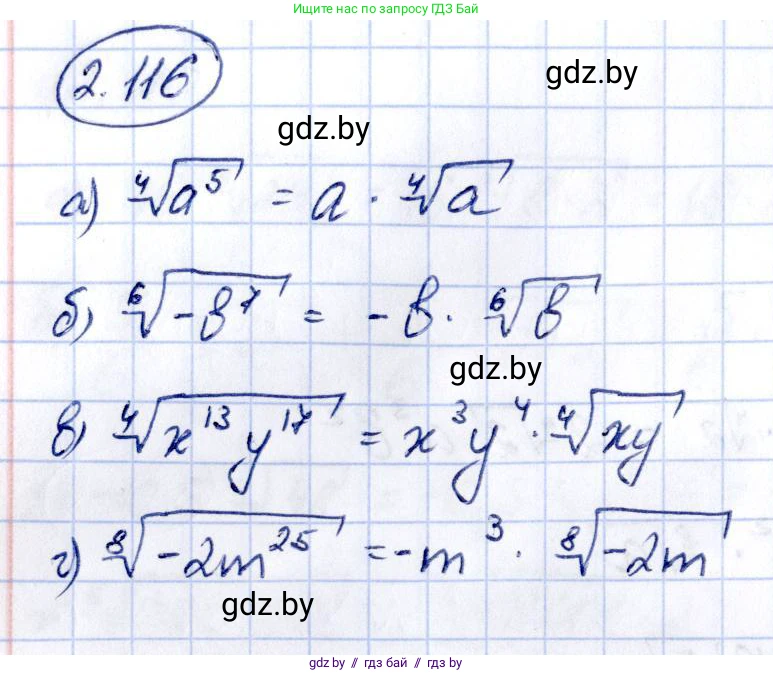 Ищите нас по запросу ГДЗ Бай
2.116
gdz.by
gdz.by
а) ⁴√a⁵ = a · ⁴√a
б) ⁶√-b⁷ = -b · ⁶√b
gdz.by
в) ⁴√x¹³y¹⁷ = x³y⁴ · ⁴√xy
г) ⁸√-2m²⁵ = -m³ · ⁸√-2m
gdz.by
gdz.by // гдз бай // гдз by